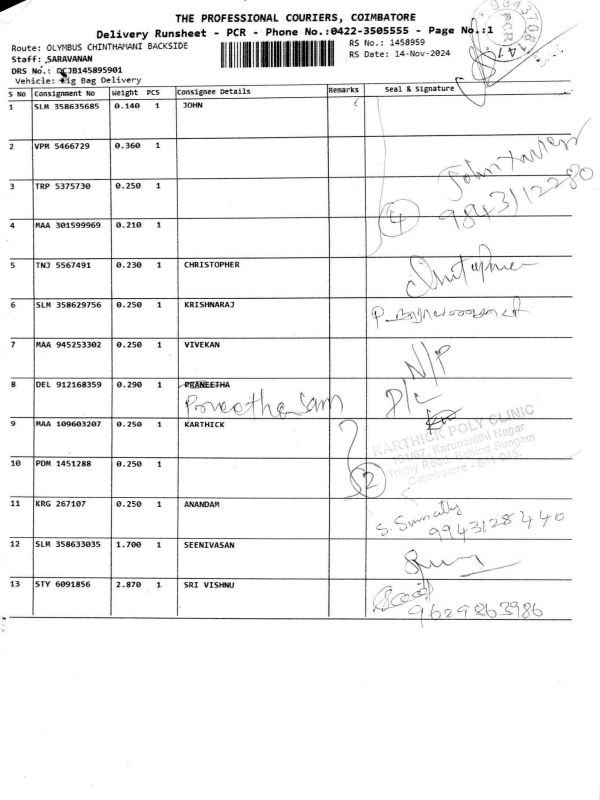 THE PROFESSIONAL COURIERS, COIMBATORE
Delivery Runsheet - PCR - Phone No.:0422-3505555 - Page No.:1
Route: OLYMBUS CHINTHAMANI BACKSIDE
RS No.: 1458959
Staff: SARAVANAN
RS Date: 14-Nov-2024
DRS No.: DCJB145895901
Vehicle: Big Bag Delivery
S No Consignment No Weight PCS Consignee Details Remarks Seal & Signature
1 SLM 358635685 0.140 1 JOHN
2 VPM 5466729 0.360 1
John Xavier
3 TRP 5375730 0.250 1
9843112280
4
4 MAA 301599969 0.210 1
5 TNJ 5567491 0.230 1 CHRISTOPHER
Christopher
6 SLM 358629756 0.250 1 KRISHNARAJ
7 MAA 945253302 0.250 1 VIVEKAN
N/P
8 DEL 912168359 0.290 1 PRANEETHA
D/L
9 MAA 109603207 0.250 1 KARTHICK
KARTHICK POLY CLINIC
101/67, Karunanidhi Nagar
Trichy Road, Behind Sungam
Coimbatore - 641 045.
10 PDM 1451288 0.250 1
2
11 KRG 267107 0.250 1 ANANDAM
S. Sumathy
9943128440
12 SLM 358633035 1.700 1 SEENIVASAN
13 STY 6091856 2.870 1 SRI VISHNU
9629863986